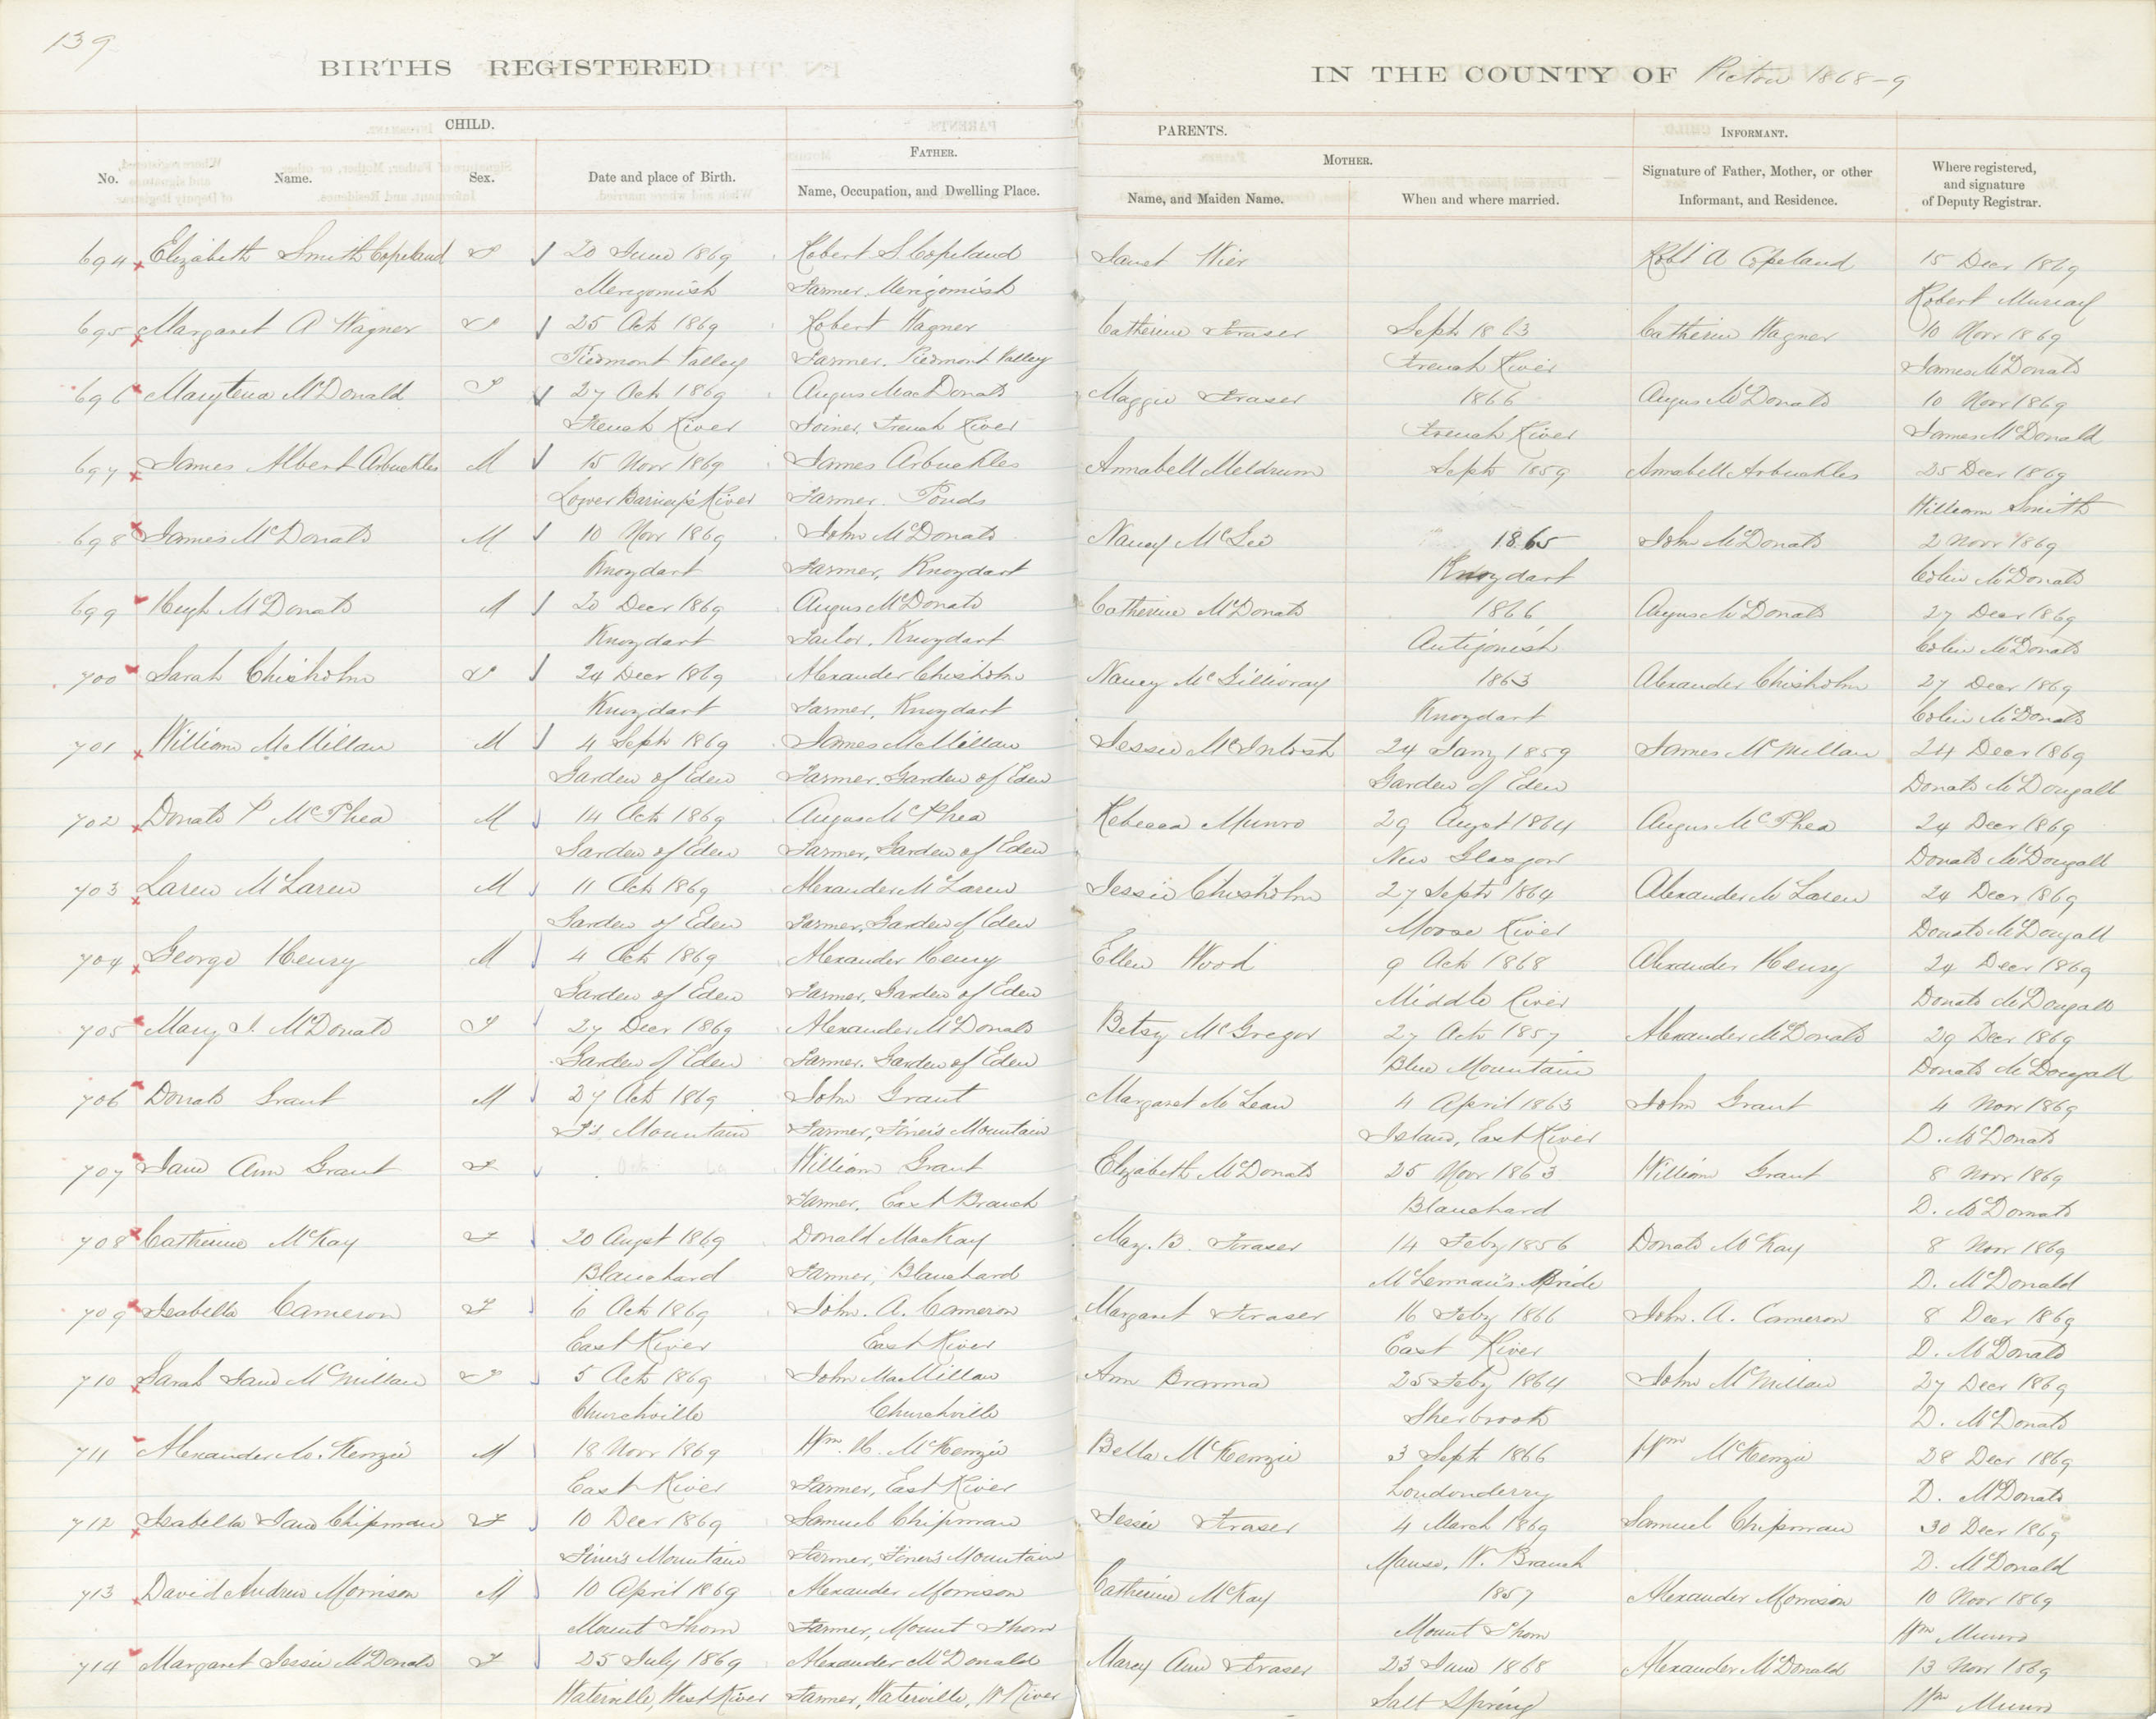 139
BIRTHS REGISTERED
IN THE COUNTY OF Pictou 1868-9
CHILD.
PARENTS.
INFORMANT.
FATHER.
MOTHER.
No. Name. Sex. Date and place of Birth. Name, Occupation, and Dwelling Place. Name, and Maiden Name. When and where married. Signature of Father, Mother, or other Informant, and Residence. Where registered, and signature of Deputy Registrar.
694 Elizabeth Smith Copeland F 20 June 1869 Robert S. Copeland Janet Wier Robt A Copeland 15 Decr 1869
Merigomish Farmer, Merigomish Robert Murray
695 Margaret A Wagner F 25 Oct 1869 Robert Wagner Catherine Fraser Sept 1863 Catherine Wagner 10 Novr 1869
Piedmont Valley Farmer. Piedmont Valley French River James McDonald
696 Marytena McDonald F 27 Oct 1869 Angus MacDonald Maggie Fraser 1866 Angus McDonald 10 Novr 1869
French River Joiner, French River French River James McDonald
697 James Albert Arbuckles M 15 Novr 1869 James Arbuckles Annabell Meldrum Sept 1859 Annabell Arbuckles 25 Decr 1869
Lower Barney's River Farmer. Ponds William Smith
698 James McDonald M 10 Novr 1869 John McDonald Nancy McGee 1865 John McDonald 2 Novr 1869
Knoydart Farmer, Knoydart Knoydart Colin McDonald
699 Hugh McDonald M 20 Decr 1869 Angus McDonald Catherine McDonald 1866 Angus McDonald 27 Decr 1869
Knoydart Tailor, Knoydart Antigonish Colin McDonald
700 Sarah Chisholm F 24 Decr 1869 Alexander Chisholm Nancy McGillivray 1863 Alexander Chisholm 27 Decr 1869
Knoydart Farmer, Knoydart Knoydart Colin McDonald
701 William McMillan M 4 Sept 1869 James McMillan Jessie McIntosh 24 Jany 1859 James McMillan 24 Decr 1869
Garden of Eden Farmer. Garden of Eden Garden of Eden Donald McDougall
702 Donald P McPhea M 14 Oct 1869 Angus McPhea Rebecca Munro 29 Augst 1864 Angus McPhea 24 Decr 1869
Garden of Eden Farmer, Garden of Eden New Glasgow Donald McDougall
703 Laren McLaren M 11 Oct 1869 Alexander McLaren Jessie Chisholm 27 Sept 1864 Alexander McLaren 24 Decr 1869
Garden of Eden Farmer, Garden of Eden Moose River Donald McDougall
704 George Henry M 4 Oct 1869 Alexander Henry Ellen Wood 9 Oct 1868 Alexander Henry 24 Decr 1869
Garden of Eden Farmer, Garden of Eden Middle River Donald McDougall
705 Mary J. McDonald F 27 Decr 1869 Alexander McDonald Betsy McGregor 27 Oct 1857 Alexander McDonald 29 Decr 1869
Garden of Eden Farmer. Garden of Eden Blue Mountain Donald McDougall
706 Donald Grant M 27 Oct 1869 John Grant Margaret McLean 4 April 1863 John Grant 4 Novr 1869
Mountain Farmer, Finer's Mountain Island, East River D. McDonald
707 Jane Ann Grant F William Grant Elizabeth McDonald 25 Novr 1863 William Grant 8 Novr 1869
Farmer, East Branch Blanchard D. McDonald
708 Catherine McKay F 20 Augst 1869 Donald MacKay May. B. Fraser 14 Feby 1856 Donald McKay 8 Novr 1869
Blanchard Farmer, Blanchard McLennan's D. McDonald
709 Isabella Cameron F 6 Oct 1869 John. A. Cameron Margaret Fraser 16 Feby 1866 John. A. Cameron 8 Decr 1869
East River East River East River D. McDonald
710 Sarah Jane McMillan F 5 Oct 1869 John MacMillan Ann 25 Feby 1864 John McMillan 27 Decr 1869
Churchville Churchville Sherbrook D. McDonald
711 Alexander Mc.Kenzie M 18 Novr 1869 Wm. H. McKenzie Bella McKenzie 3 Sept 1866 Wm McKenzie 28 Decr 1869
East River Farmer, East River Londonderry D. McDonald
712 Isabella Jane Chipman F 10 Decr 1869 Samuel Chipman Jessie Fraser 4 March 1869 Samuel Chipman 30 Decr 1869
Finer's Mountain Farmer, Finer's Mountain Manse, W. Branch D. McDonald
713 David Andrew Morrison M 10 April 1869 Alexander Morrison Catherine McKay 1857 Alexander Morrison 10 Novr 1869
Mount Thom Farmer, Mount Thom Mount Thom Wm Munro
714 Margaret Jessie McDonald F 25 July 1869 Alexander McDonald Marey Ann Fraser 23 June 1868 Alexander McDonald 13 Novr 1869
Waterville, West River Farmer, Waterville, W River Salt Spring Wm Munro